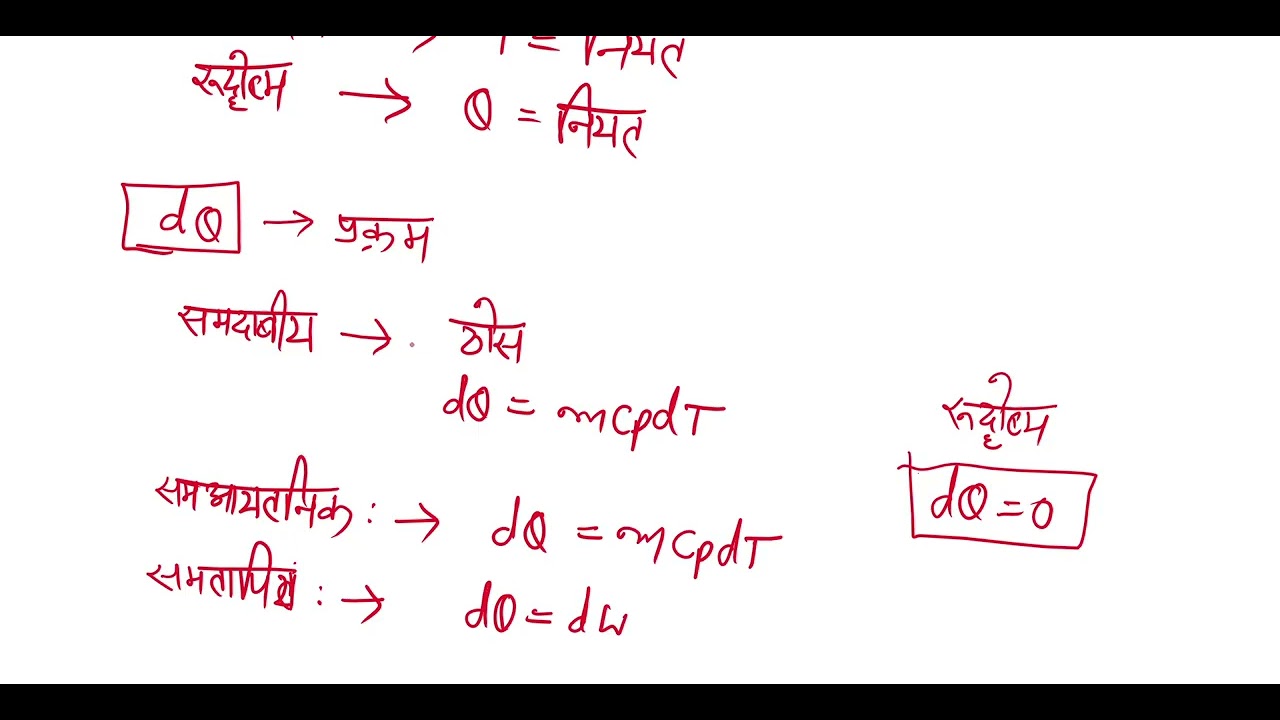 → T = नियत
रूद्धोष्म → Q = नियत
dQ → प्रक्रम
समदाबीय → ठोस
dQ = mCpdT
रूद्धोष्म
समआयतनिक : → dQ = mCpdT
dQ = 0
समतापिय : → dQ = dW